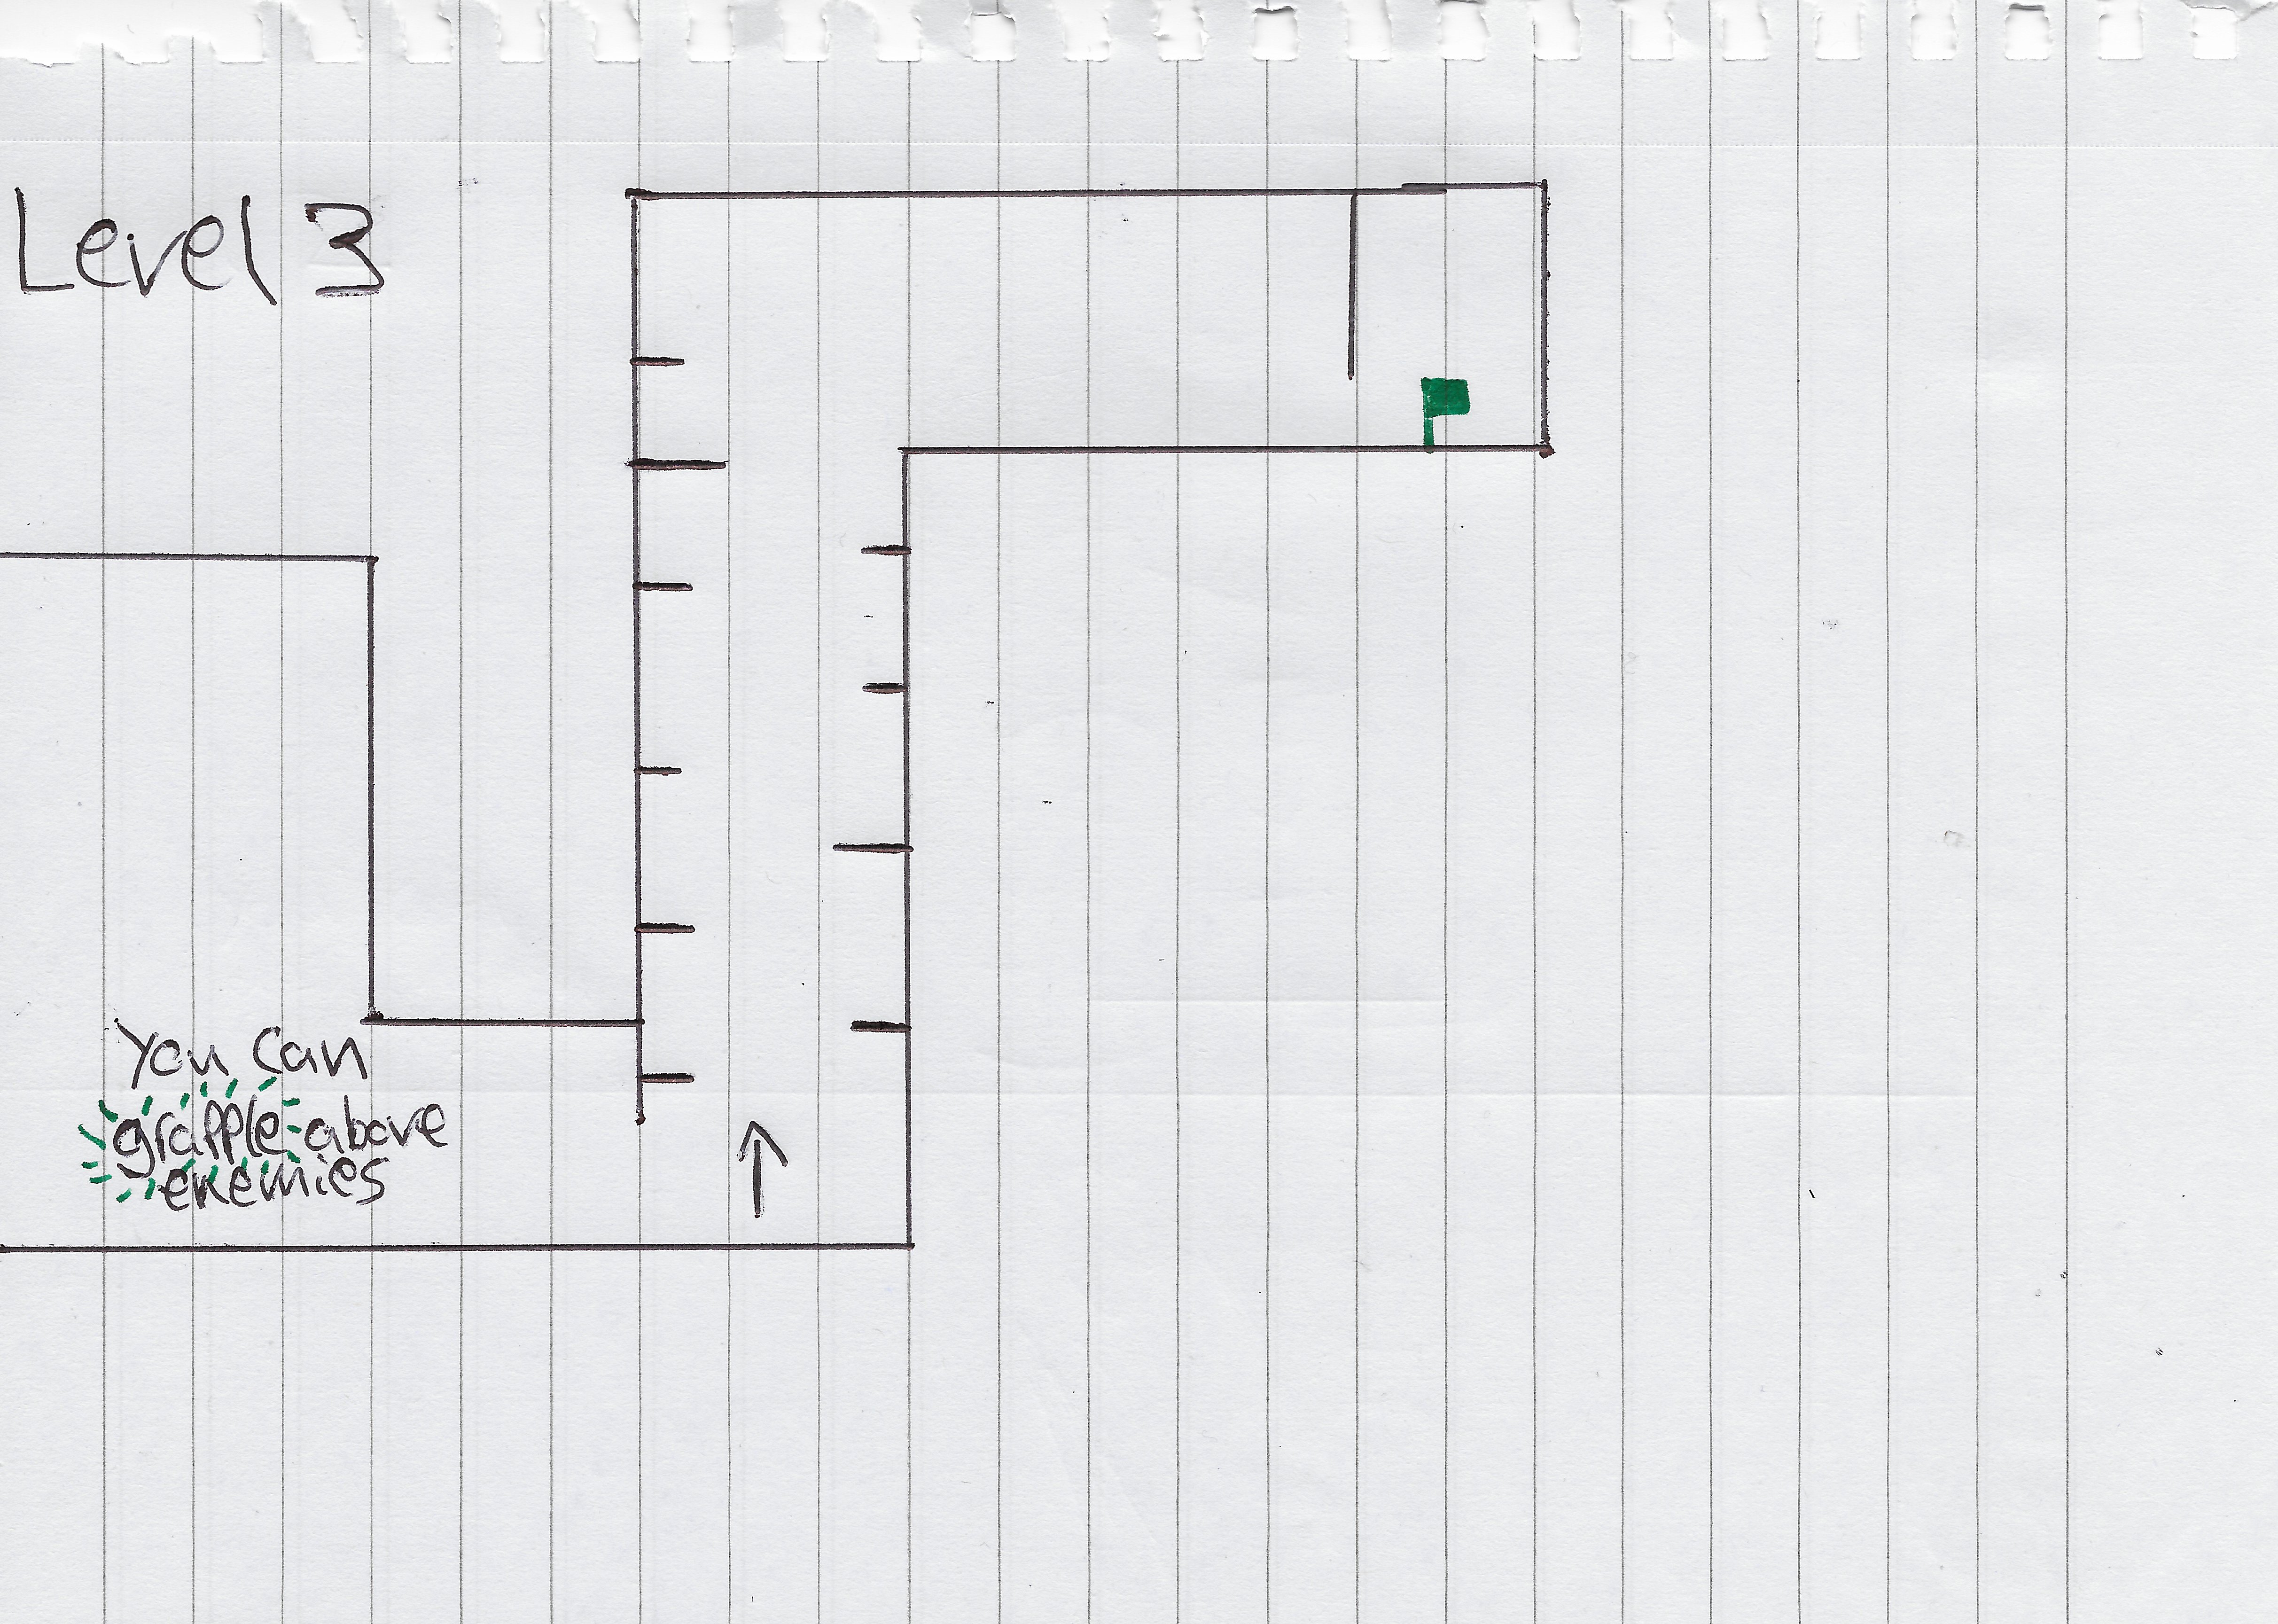 Level 3
You can
grapple above
enemies